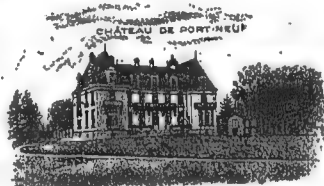 CHÂTEAU DE PORT-NEUF